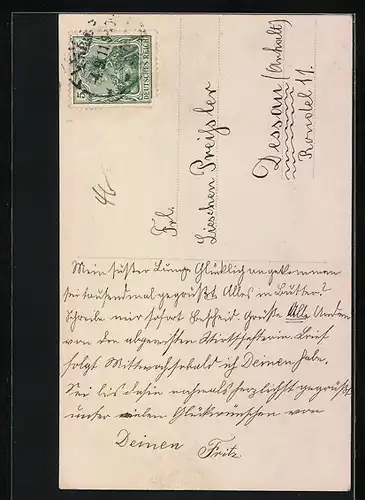 5
DEUTSCHES REICH
46
Frl.
Lieschen Preißler
Dessau (Anhalt)
Rondel 11.
Mein süßer Lump. Glücklich angekommen
sei tausendmal gegrüßt. Alles in Butter?
Schreibe mir sofort Bescheid. Grüße Alle Andern
von der Brief
folgt Mittwoch sobald ich Deinen habe.
Sei bis dahin nochmals herzlichst gegrüßt
unter vielen Glückwünschen von
Deinen Fritz